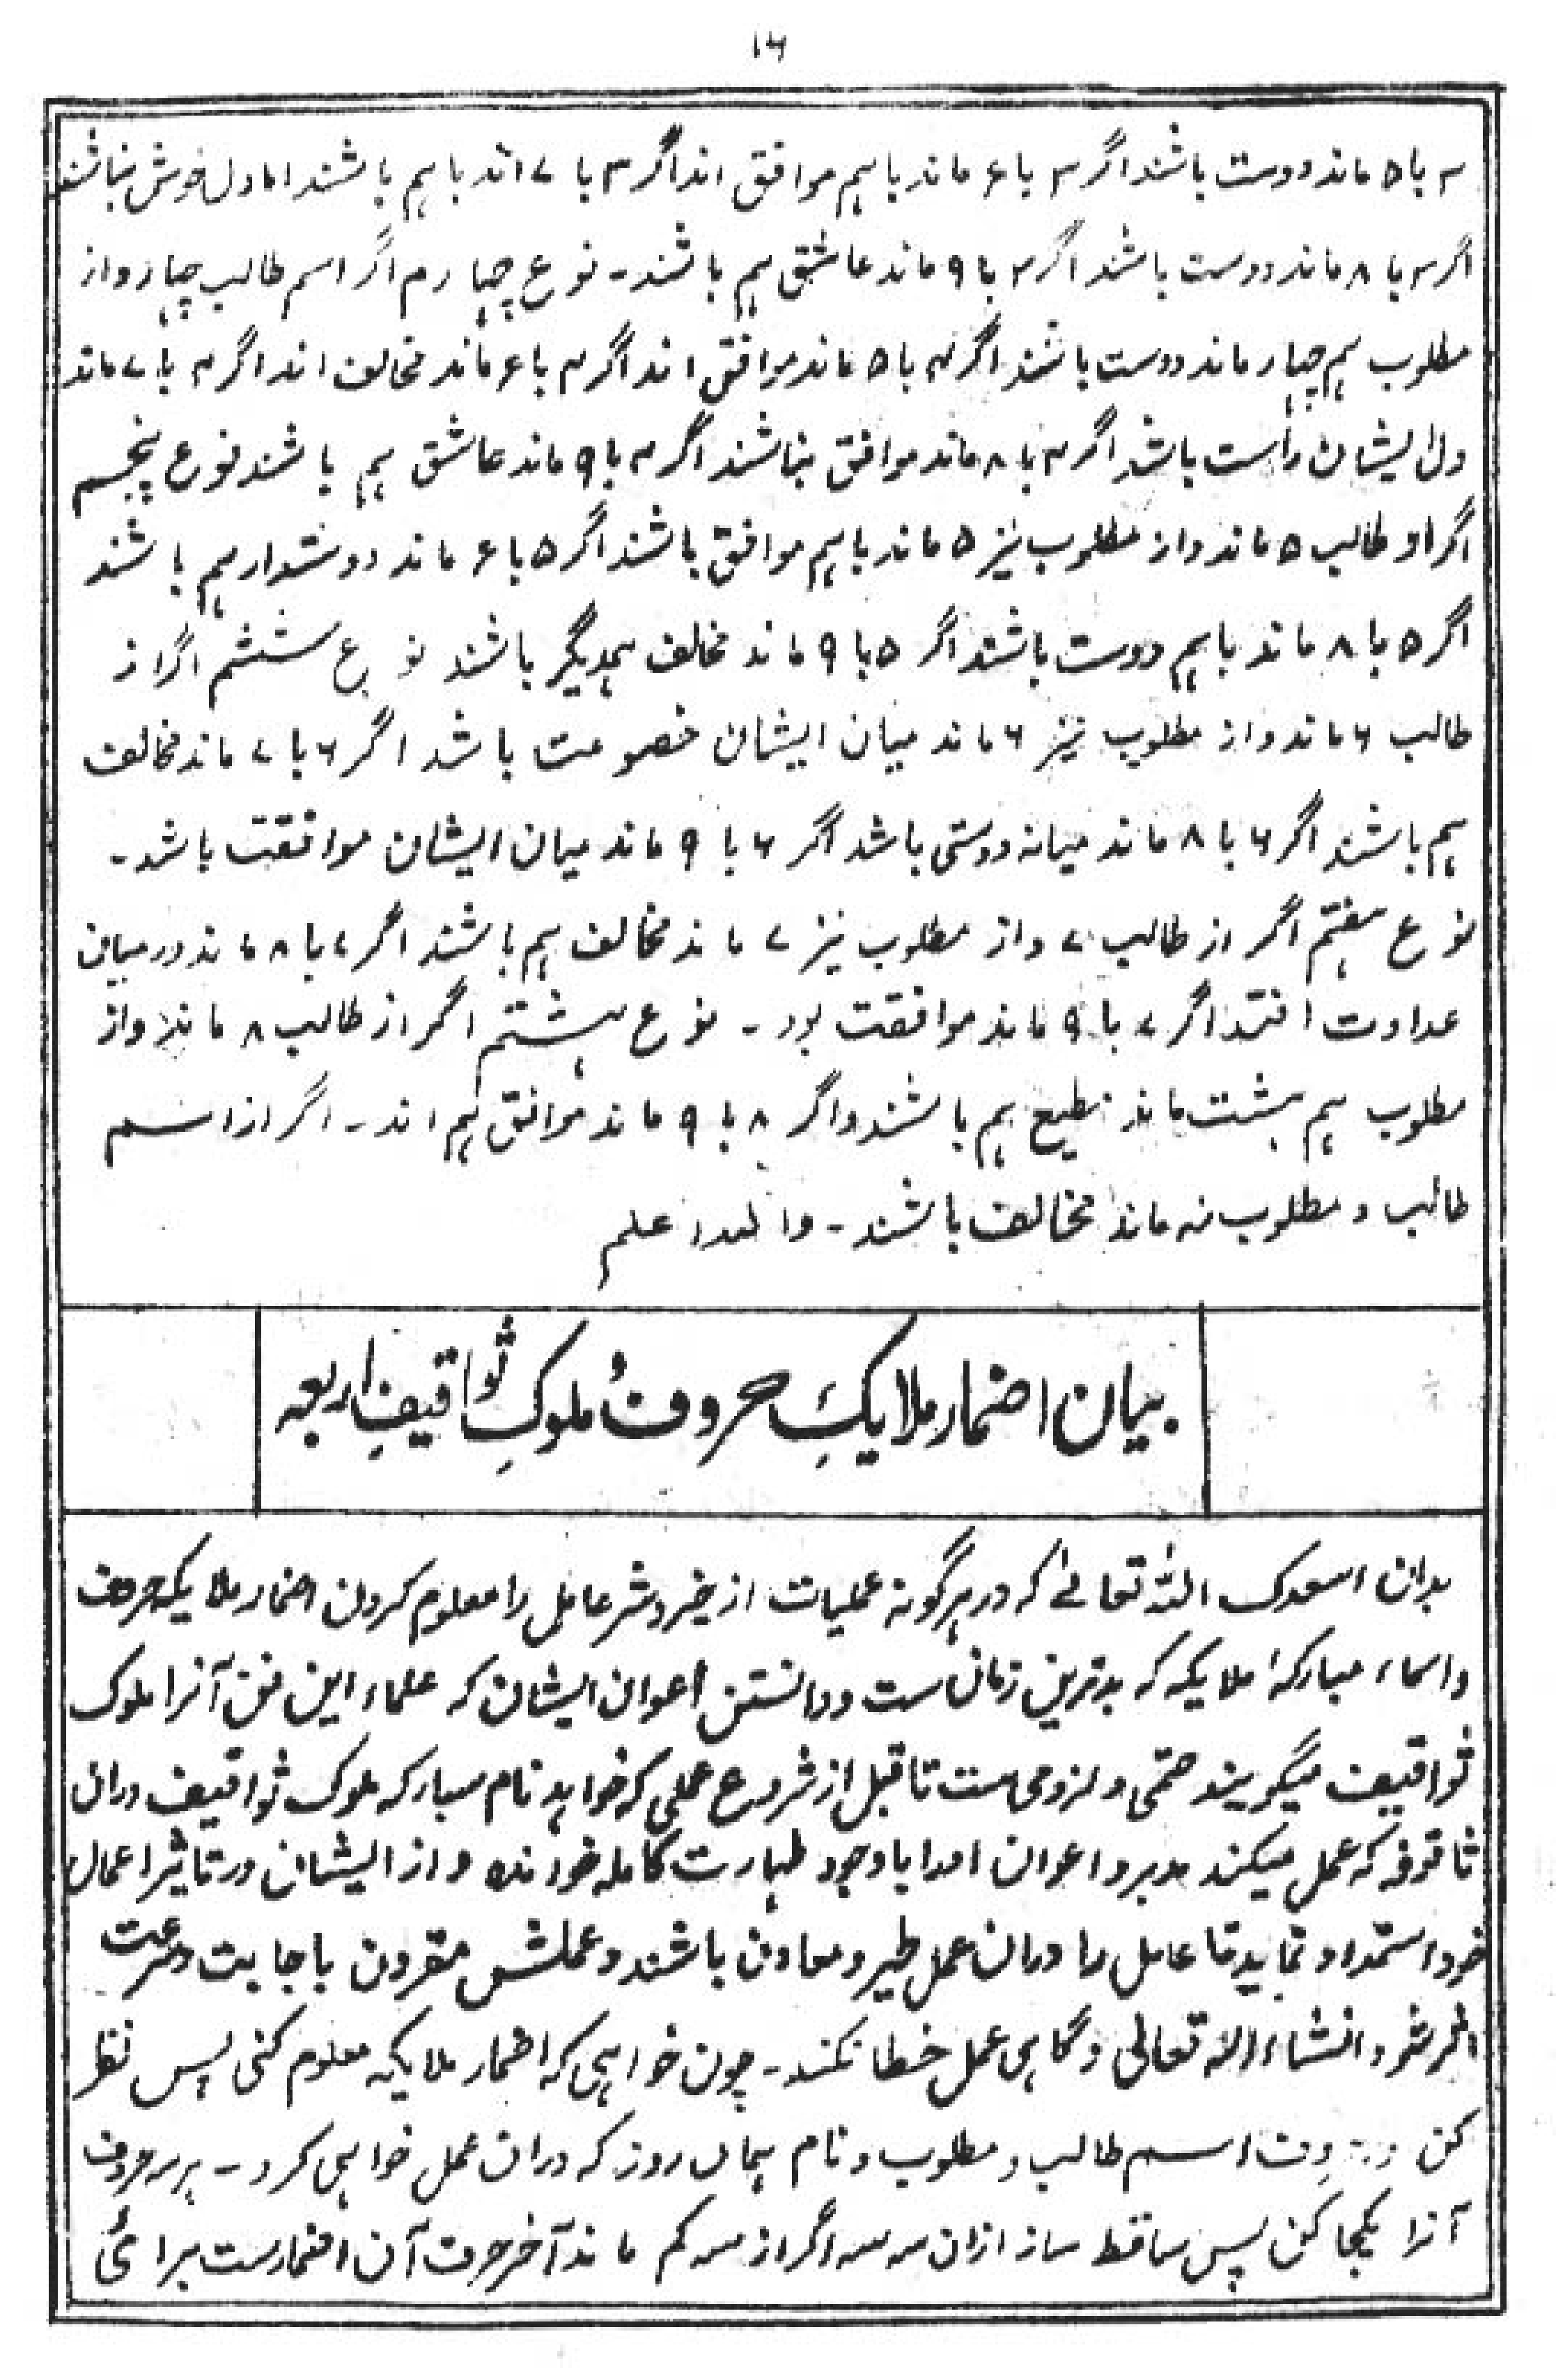 ۱۶
۳ با ۵ ماند دوست باشند اگر ۳ با ۶ ماند باہم موافق اند اگر ۳ با ۷ اند باہم باشند اما دل خوش نباشند
اگر ۳ با ۸ ماند دوست باشند اگر ۳ با ۹ ماند عاشق ہم باشند - نوع چہارم اگر اسم طالب چہار و از
مطلوب ہم چہار ماند دوست باشند اگر ۴ با ۵ ماند موافق اند اگر ۴ با ۶ ماند مخالف اند اگر ۴ با ۷ ماند
دل ایشان راست باشد اگر ۴ با ۸ ماند موافق نباشند اگر ۴ با ۹ ماند عاشق ہم باشند نوع پنجم
اگر او طالب ۵ ماند و از مطلوب نیز ۵ ماند باہم موافق باشند اگر ۵ با ۶ ماند دوستدار ہم باشند
اگر ۵ با ۸ ماند باہم دوست باشند اگر ۵ با ۹ ماند مخالف ہمدیگر باشند نوع ششم اگر از
طالب ۶ ماند و از مطلوب نیز ۶ ماند میان ایشان خصومت باشد اگر ۶ با ۷ ماند مخالف
ہم باشند اگر ۶ با ۸ ماند میانہ دوستی باشد اگر ۶ با ۹ ماند میان ایشان موافقت باشد -
نوع ہفتم اگر از طالب ۷ و از مطلوب نیز ۷ ماند مخالف ہم باشند اگر ۷ با ۸ ماند در میان
عداوت افتد اگر ۷ با ۹ ماند موافقت بود - نوع ہشتم اگر از طالب ۸ ماند و از
مطلوب ہم ہشت ماند مطیع ہم باشند و اگر ۸ با ۹ ماند موافق ہم اند - اگر از اسم
طالب و مطلوب نہ ماند مخالف باشند - واللہ اعلم
بیان اضمار ملایکِ حروف و ملوکِ ثواقیفِ اربعہ
بدان اسعدک اللہ تعالیٰ کہ در ہر گونہ عملیات از خیر و شر عامل را معلوم کردن اضمار ملایکہ حروف
و اسماء مبارکۂ ملایکہ کہ بدترین زمان ست و دانستن اعوان ایشان کہ علماء این فن آنرا ملوک
ثواقیف میگویند حتمی و لزومی ست تا قبل از شروع عملی کہ خواہد نام مبارکہ ملوک ثواقیف دران
ثاقوفہ کہ عمل میکند مدبر و اعوان اورا با وجود طہارت کاملہ خواندہ و از ایشان در تاثیر اعمال
خود استمداد نماید تا عامل را دران عمل ظہیر و معاون باشند و عملش مقرون باجابت و سرعت
اثر شود انشاء اللہ تعالی و گاہی عمل خطا نکند - چون خواہی کہ اضمار ملایکہ معلوم کنی پس نظر
کن اسم طالب و مطلوب و نام ہمان روز کہ دران عمل خواہی کرد - ہر سہ حروف
آنرا یکجا کن پس ساقط ساز ازان سہ سہ اگر از سہ کم ماند آخر حرف آن اضمارست برائ